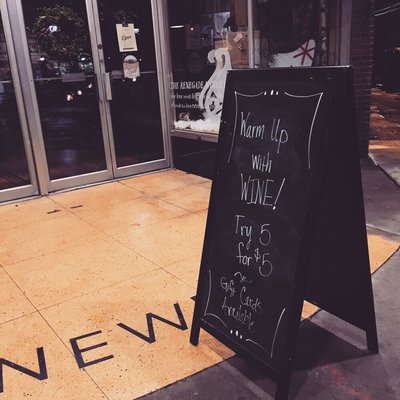 Open
THE RENEGADE
Warm Up
with
WINE!
Try 5
for $5
Gift Cards
Available
NEW